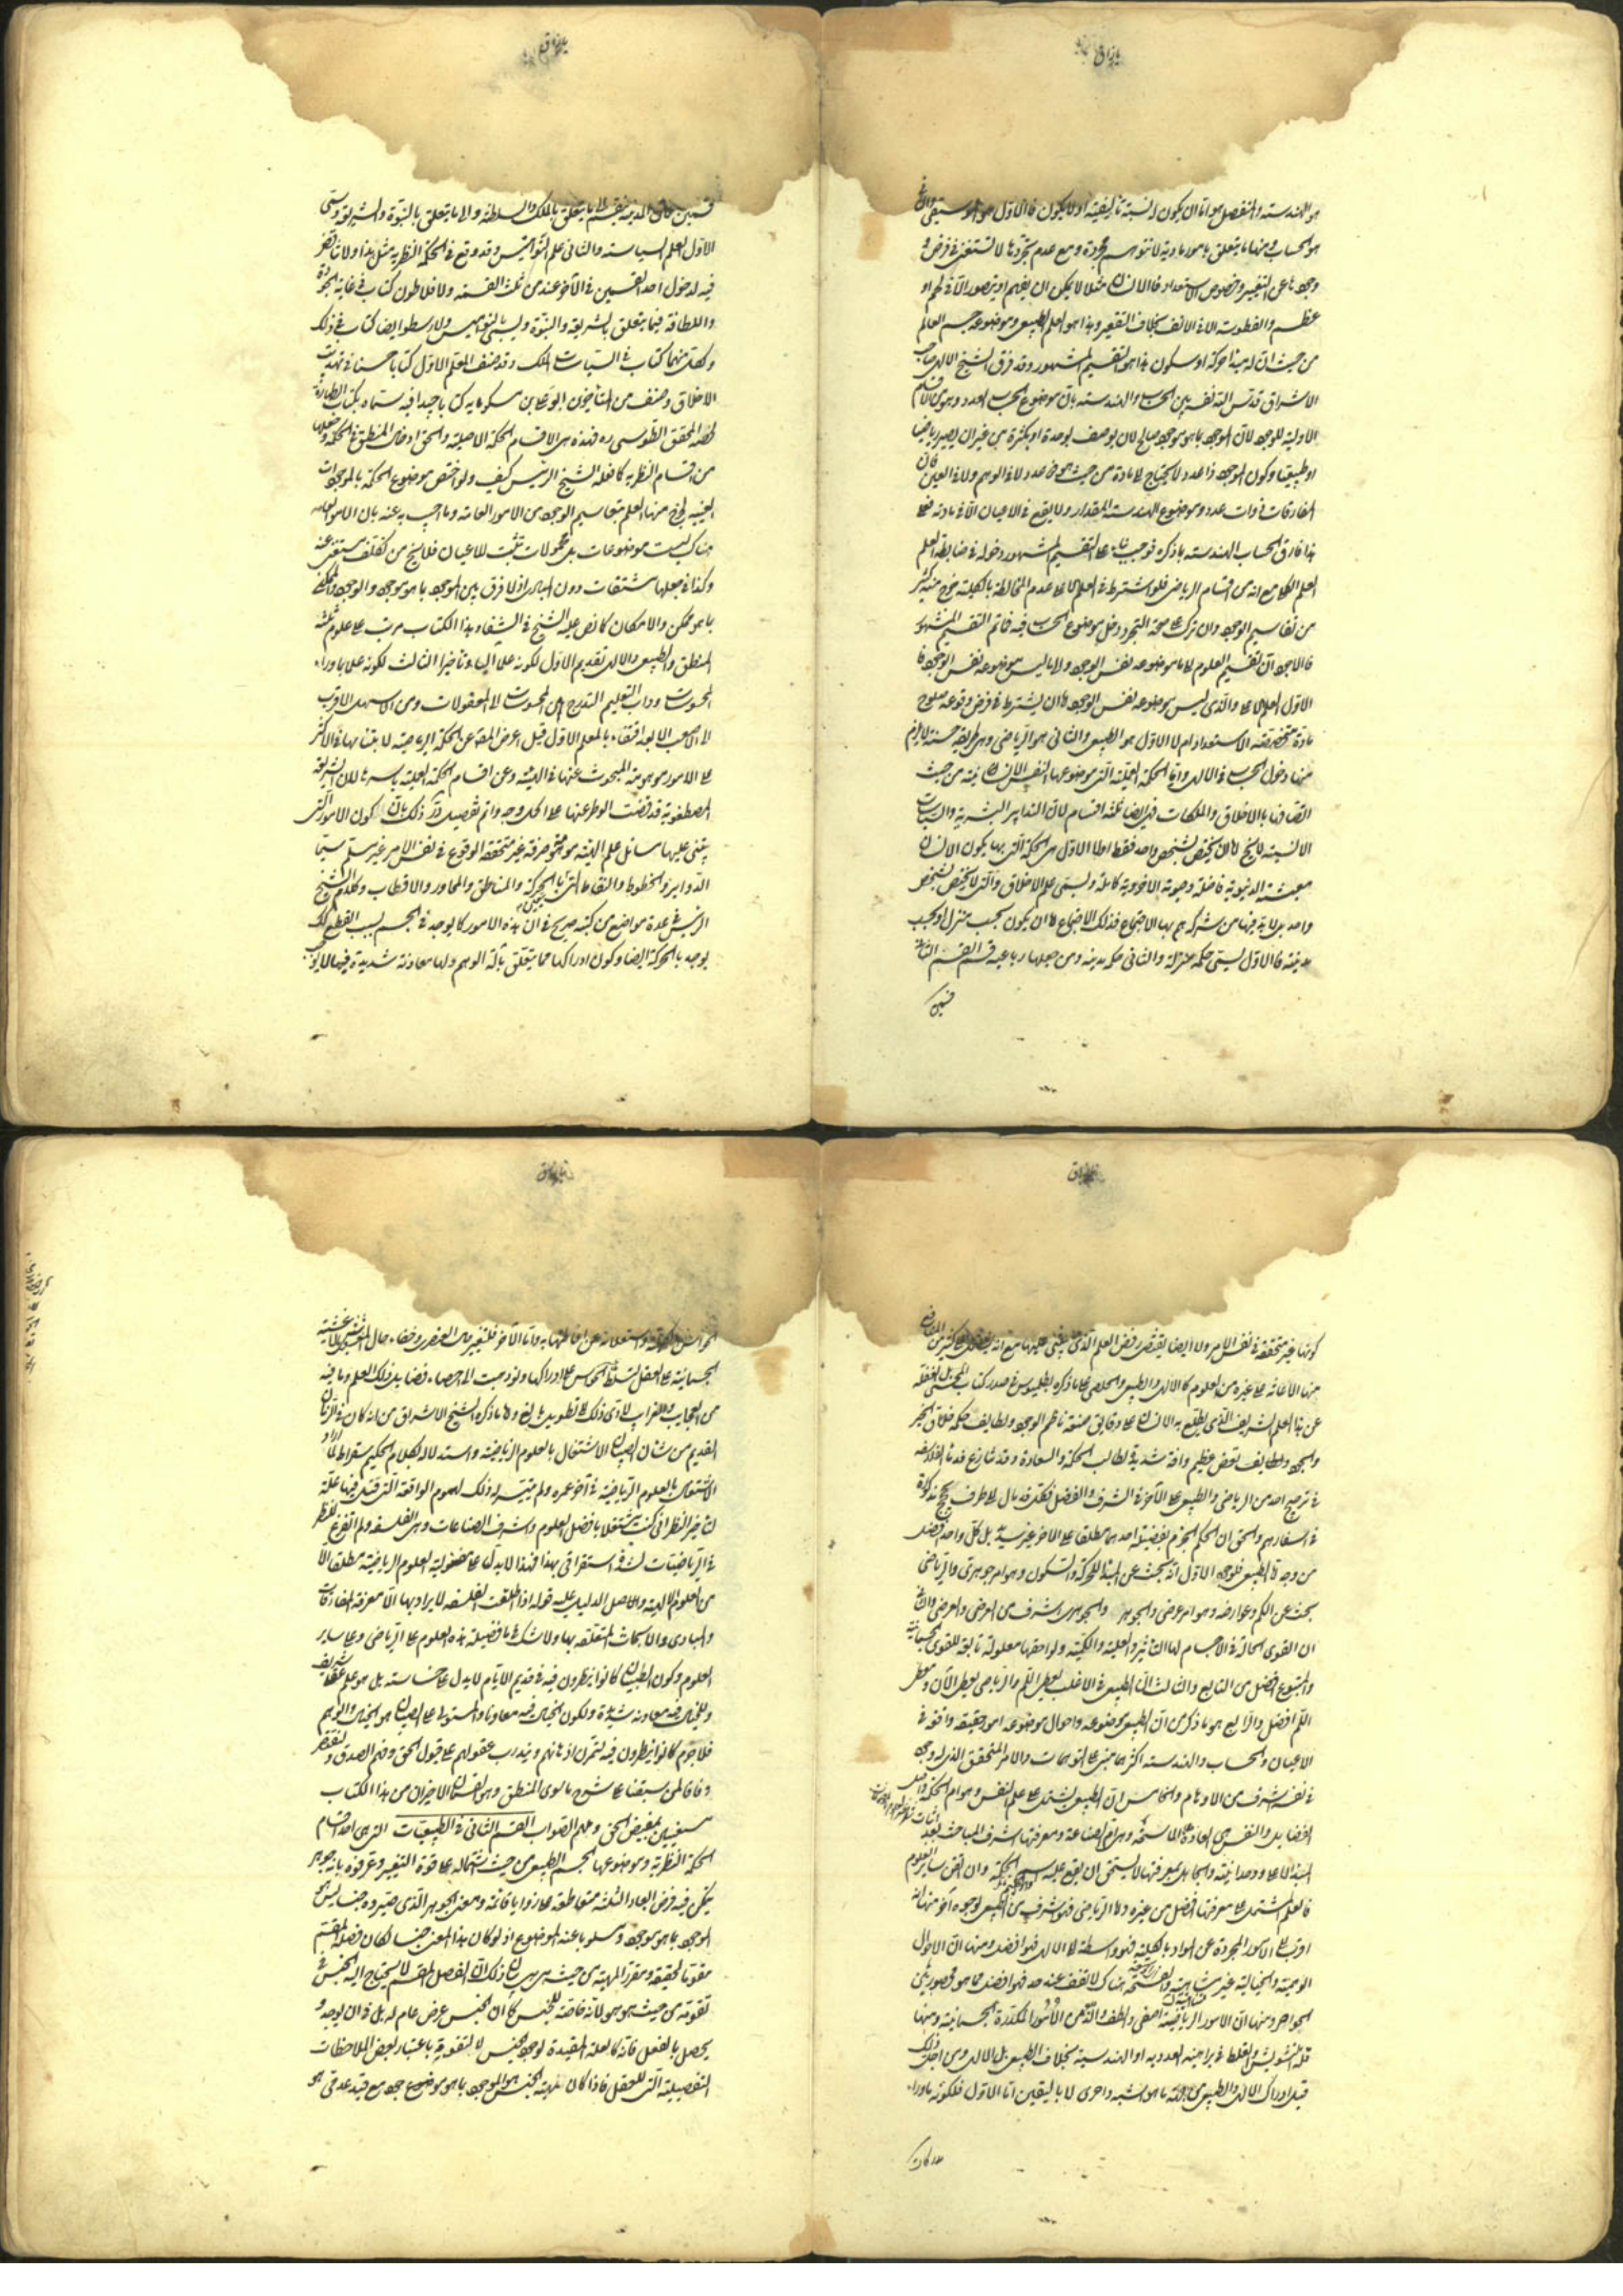 هو الهندسة والمنفصل هو اما ان يكون له نسبة تاليفية او لا يكون فالاول هو الموسيقى والثانى
هو الحساب ومنها ما يتعلق بامور مادية لا تتوهم مجردة ومع عدم تجردها لا تستغنى فى فرض
وجودها عن التغير وخصوص الاستعداد فالانسان مثلا لا يمكن ان يفهم او يتصور الا فى لحم او
عظم والفطوسة الا فى الانف بخلاف التقعير وهذا هو العلم الطبيعى وموضوعه جسم العالم
من حيث ان له مبدأ حركة او سكون هذا هو التقسيم المشهور وقد فرق الشيخ الالهى صاحب
الاشراق قدس الله نفسه بين الحساب والهندسة بان موضوع الحساب العدد وهو من الاقسام
الاولية للوجود لان الموجود بما هو موجود صالح لان يوصف بوحدة او بكثرة من غير ان يصير رياضيا
او طبيعيا وكون الموجود ذا عدد لا يحتاج الى مادة من حيث هو ذا عدد لا فى الوهم ولا فى العين فان
المفارقات ذوات عدد وموضوع الهندسة المقدار ولا يقع فى الاعيان الا فى مادة فعلى
هذا فارق الحساب الهندسة بما ذكره فوجب بناء على التقسيم المشهور دخوله فى ضابطة العلم
العلم الكلى مع انه من اقسام الرياضى فلو اشترط فى العلم الاعلى عدم المخالطة بالكلية خرج منه كثير
من تقاسيم الوجود وان ترك على صحة التجرد دخل موضوع الحساب فيه فاتم التقسيم المشهور
فالاجود ان تقسيم العلوم الى ما موضوعه نفس الوجود والى ما ليس موضوعه نفس الوجود فا
الاول العلم الاعلى والذى ليس موضوعه نفس الوجود فاما ان يشترط فى فرض وقوعه صلوح
مادة متخصصة الاستعداد ام لا الاول هو الطبيعى والثانى هو الرياضى وهى طريقة حسنة لا يلزم
منها دخول الحساب فى الالهى واما الحكمة العملية التى موضوعها النفس الانسانية من حيث
اتصافها بالاخلاق والملكات فهى ايضا ثلثة اقسام لان التدابير البشرية والسياسات
الانسية لا يخلو اما ان يختص بشخص واحد فقط او لا الاول هى الحكمة التى بها يكون الانسان
معيشته الدنيوية فاضلة وحيوته الاخروية كاملة ويسمى علم الاخلاق والتى لا يختص بشخص
واحد بل لا بد فيها من شركة هم بها الاجتماع فذلك الاجتماع اما ان يكون بحسب منزل او بحسب
مدينة فالاول يسمى حكمة منزلية والثانى حكمة مدنية ومن جعلها رباعية قسم القسم الثالث
قسمين
قسمين فان المدينة ينقسم الى ما يتعلق بالملك والسلطنة والى ما يتعلق بالنبوة والشريعة ويسمى
الاول علم السياسة والثانى علم النواميس وقد وقع فى الحكمة النظرية مثل هذا ولا تناقض
فيه لدخول احد القسمين فى الآخر عند من ثلث القسمة ولافلاطون كتاب فى غاية الجودة
واللطافة فيما يتعلق بالشريعة والنبوة ويسمى بالنواميس ولارسطو ايضا كتاب فى ذلك
ولكل منهما كتاب فى السياسات الملك وقد صنف المعلم الاول كتابا حسنا فى تهذيب
الاخلاق وصنف من المتأخرين ابو على بن مسكويه كتابا جيدا فيه سماه بكتاب الطهارة
لخصه المحقق الطوسى ره فهذه هى الاقسام الحكمة الاصلية والحق ادخال المنطق فى الحكمة وجعلها
من اقسام النظرية كما فعله الشيخ الرئيس كيف ولو اختص موضوع الحكمة بالموجودات
العينية لخرج منها العلم بتقاسيم الوجود من الامور العامة وما اجيب به عنه بان الامور العامة
هناك ليست موضوعات بل محمولات تثبت للاعيان فلا يخلو من تكلف مستغنى عنه
وكذا فى جعلها مشتقات دون المبادى اذ لا فرق بين الموجود بما هو موجود والوجود والممكن
بما هو ممكن والامكان كما نص عليه الشيخ فى الشفاء وهذا الكتاب مرتب على علوم ثلثة
المنطق والطبيعى والالهى تقديم الاول لكونه علما آليا وتأخير الثالث لكونه علما بما وراء
المحسوسات وداب التعليم التدرج من المحسوسات الى المعقولات ومن الاسهل الاقرب
الى الاصعب الابعد اقتفاء بالمعلم الاول قيل اعرض المصنف عن الحكمة الرياضية لابتنائها فى الاكثر
على الامور موهومة المبحوث عنها فى الهيئة وعن اقسام الحكمة العملية باسرها لان الشريعة
المصطفوية قد قضت الوطر عنها على اكمل وجه واتم تفصيل ورد ذلك بان كون الامور التى
يبتنى عليها مسائل علم الهيئة موهومة صرفة غير متحققة الوقوع فى نفس الامر غير مسلم سيما
الدوائر والخطوط والنقاط التى بالحركة والمناطق والمحاور والاقطاب وكلام الشيخ
الرئيس فى عدة مواضع من كتبه صريح فى ان هذه الامور كما يوجد فى الجسم بسبب القطع كذلك
يوجد بالحركة ايضا وكون ادراكها مما يتعلق بآلة الوهم ولها معاونة شديدة فيها لا يوجب
كونها غير متحققة فى نفس الامر ولا ايضا يقتضى رفض العلم الذى يبتنى عليها مع انه يفضل على كثير من
منها الاعانة على غيره من العلوم كالالهى والطبيعى والخلقى على ما ذكره بطلميوس فى صدر كتاب المجسطى بل الغفلة
عن هذا العلم الشريف الذى يطلع به الانسان على دقايق صنعة ناظم الوجود ولطايف حكمة خلاق الخير
والجود ولطايف نقص عظيم وآفة شديدة لطالب الحكمة والسعادة وقد تنازع قدماء الفلاسفة
فى ترجيح احد من الرياضى والطبيعى على الآخر فى الشرف والفضل فكل قد مال الى طرف بحجج مذكورة
فى اسفارهم والحق ان الحكم الجزم بفضيلة احدهما مطلقا على الآخر غير سديد بل كل واحد افضل
من وجه اما الطبيعى فلوجوه الاول انه يبحث عن المبدأ للحركة والسكون وهو امر جوهرى والرياضى
يبحث عن الكم وعوارضه وهو امر عرضى والجوهر والجوهرى اشرف من العرض والعرضى والثانى
ان القوى الحالة فى الاجسام لها التأثير والعلية والكمية ولواحقها معلولة تابعة للقوى الجسمانية
والمتبوع افضل من التابع والثالث ان الطبيعى فى الاغلب يعطى اللم والرياضى يعطى الآن ومعطى
اللم افضل والرابع هو ما ذكر من ان الطبيعى موضوعه واحوال موضوعه امور حقيقة واقعة فى
الاعيان والحساب والهندسة اكثرهما مبنى على التوهمات والامر المتحقق الذى له وجود
فى نفسه اشرف من الاوهام والخامس ان الطبيعى يشتمل على علم النفس وهو ام الحكمة واصل
الفضايل والنفس هى المادة الراسخة وهى ام الصناعة ومعرفتها اشرف المباحث بعد اثبات
المبدأ الاعلى ووحدانيته والجاهل بمعرفتها لا يستحق ان يقع عليه اسم الحكمة وان اتقن ساير العلوم
فالعلم المشتمل على معرفتها افضل من غيره واما الرياضى فهو اشرف من الطبيعى لوجوه آخر منها انه
اقرب الى الامور المجردة عن المواد بالكلية فهو واسطة الى الالهى فهو افضل ومنها ان الاحوال
الوهمية والخيالية غير متناهية والقسمة هناك لا تقف عند حد فهو افضل مما هو محصور بين
الحواصر ومنها ان الامور الرياضية اصفى والطف والذ من الامور المكدرة الجسمانية ومنها
قلة التشويش والغلط فى براهينه العددية او الهندسية بخلاف الطبيعى بل الالهى ومن اجل ذلك
قيل ادراك الالهى والطبيعى من جهة ما هو اشبه واحرى لا باليقين اما الاول فلكونه ما وراء
الحواس
الجسمانية على العقل لتسلط الحواس على ادراكها ولو ذهبت الى احصاء فضايل ذلك العلم وما فيه
من العجايب والغرايب لادى ذلك الى تطويل بالغ واما ما ذكره الشيخ الاشراقى من انه كان فى الزمان
القديم من شأن الصبيان الاشتغال بالعلوم الرياضية واستدلاله بكلام الحكيم سقراط لما اراد
الاشتغال بالعلوم الرياضية فى آخر عمره ولم يتيسر له ذلك لهجوم الواقعة التى قتل فيها علة
لتأخير النظر انى كنت مشتغلا بافضل العلوم واشرف الصناعات وهى الفلسفة ولم اتفرغ للنظر
فى الرياضيات لشدة استغراقى بهذا فهذا لا يدل على مفضولية العلوم الرياضية مطلقا الا
من العلوم الالهية والاصل الدليل عليه قوله اذا اطلقت الفلسفة لا يراد بها الا معرفة المفارقات
والمبادى والابحاث المتعلقة بها ولا شك لنا فضيلة هذه العلوم على الرياضى وعلى ساير
العلوم وكون الصبيان كانوا ينظرون فيه فى قديم الايام لا يدل على خساسته بل هو علم عقلى شريف
وللخيال فيه معاونة شديدة ولكون الخيال فيه معاونا والمستولى على الصبيان هو الخيال والوهم
فلا جرم كانوا ينظرون فيه لتمرن اذهانهم ويتدرب عقولهم على قبول الحق وفهم الصدق
وفاقا لمن سبقنا على شرح ما سوى المنطق وهو القسمان الاخيران من هذا الكتاب
مستعينين بمفيض الحق وملهم الصواب القسم الثانى فى الطبيعيات التى هى احد اقسام
الحكمة النظرية وموضوعها الجسم الطبيعى من حيث اشتماله على قوة التغير وعرفوه بانه جوهر
يمكن فيه فرض ابعاد الثلثة متقاطعة على زوايا قائمة ومعنى الجوهر الذى صيروه جنسا ليس هو
الموجود بما هو موجود مسلوبا عنه الموضوع اذ لو كان هذا المعنى جنسا لكان فصله المقسم
مقوما لحقيقته ومقررا لمهيته من حيث هى هى بيان ذلك ان الفصل المقسم لا يحتاج اليه الجنس فى
تقومه من حيث هو هو لانه خاصة للجنس كما ان الجنس عرض عام له بل فى ان يوجد و
يحصل بالفعل فانه كالعلة المفيدة لوجود الجنس لا لتقومه باعتبار بعض الملاحظات
التفصيلية التى للعقل فاذا كان مهية الجنس هو الموجود بما هو موجود مع قيد عدمى هو